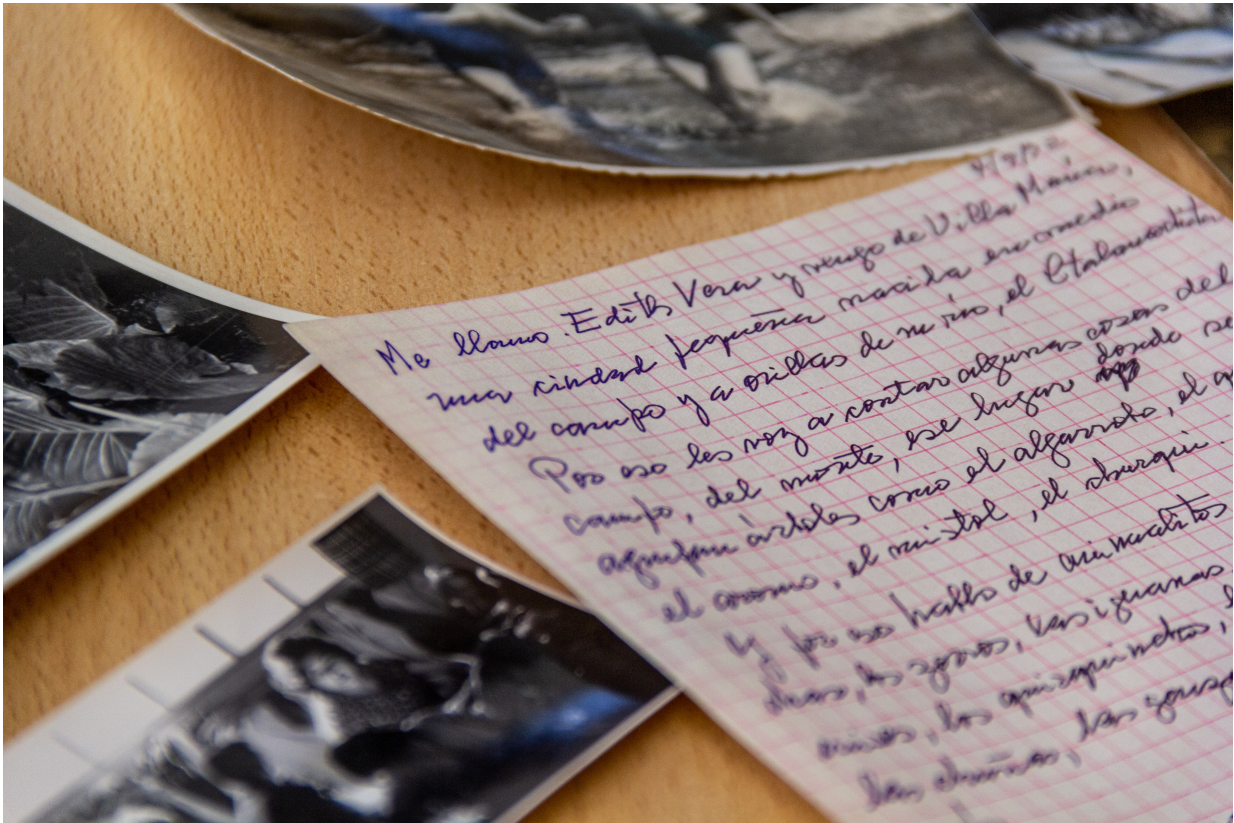 Me llamo Edith Vera y vengo de Villa María,
una ciudad pequeña nacida en medio
del campo y a orillas de un río, el Ctalamochita
Por eso les voy a contar algunas cosas del
campo, del monte, ese lugar donde se
agrupan árboles como el algarroto, el
el coromo, el mistol, el churqui.
Y por eso hablo de animalitos
los zorros, las iguanas
los quirquinchos,
las chuñas, las